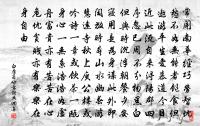 常聞南華經巧勞智憂
愁不如無能者飽食但
遨遊平生愛慕道今日
近此流自來潯陽郡四
序忽已周不分物黑白
但與時沉浮朝餐夕安
寢用是為身謀此外即
閑放時尋山水幽春遊
慧遠寺秋上庾公樓或
吟詩一章或飲茶一甌
身心一無繫浩浩如虛
舟富貴亦有苦苦在心
危憂貧賤亦有樂樂在
身自由
白居易